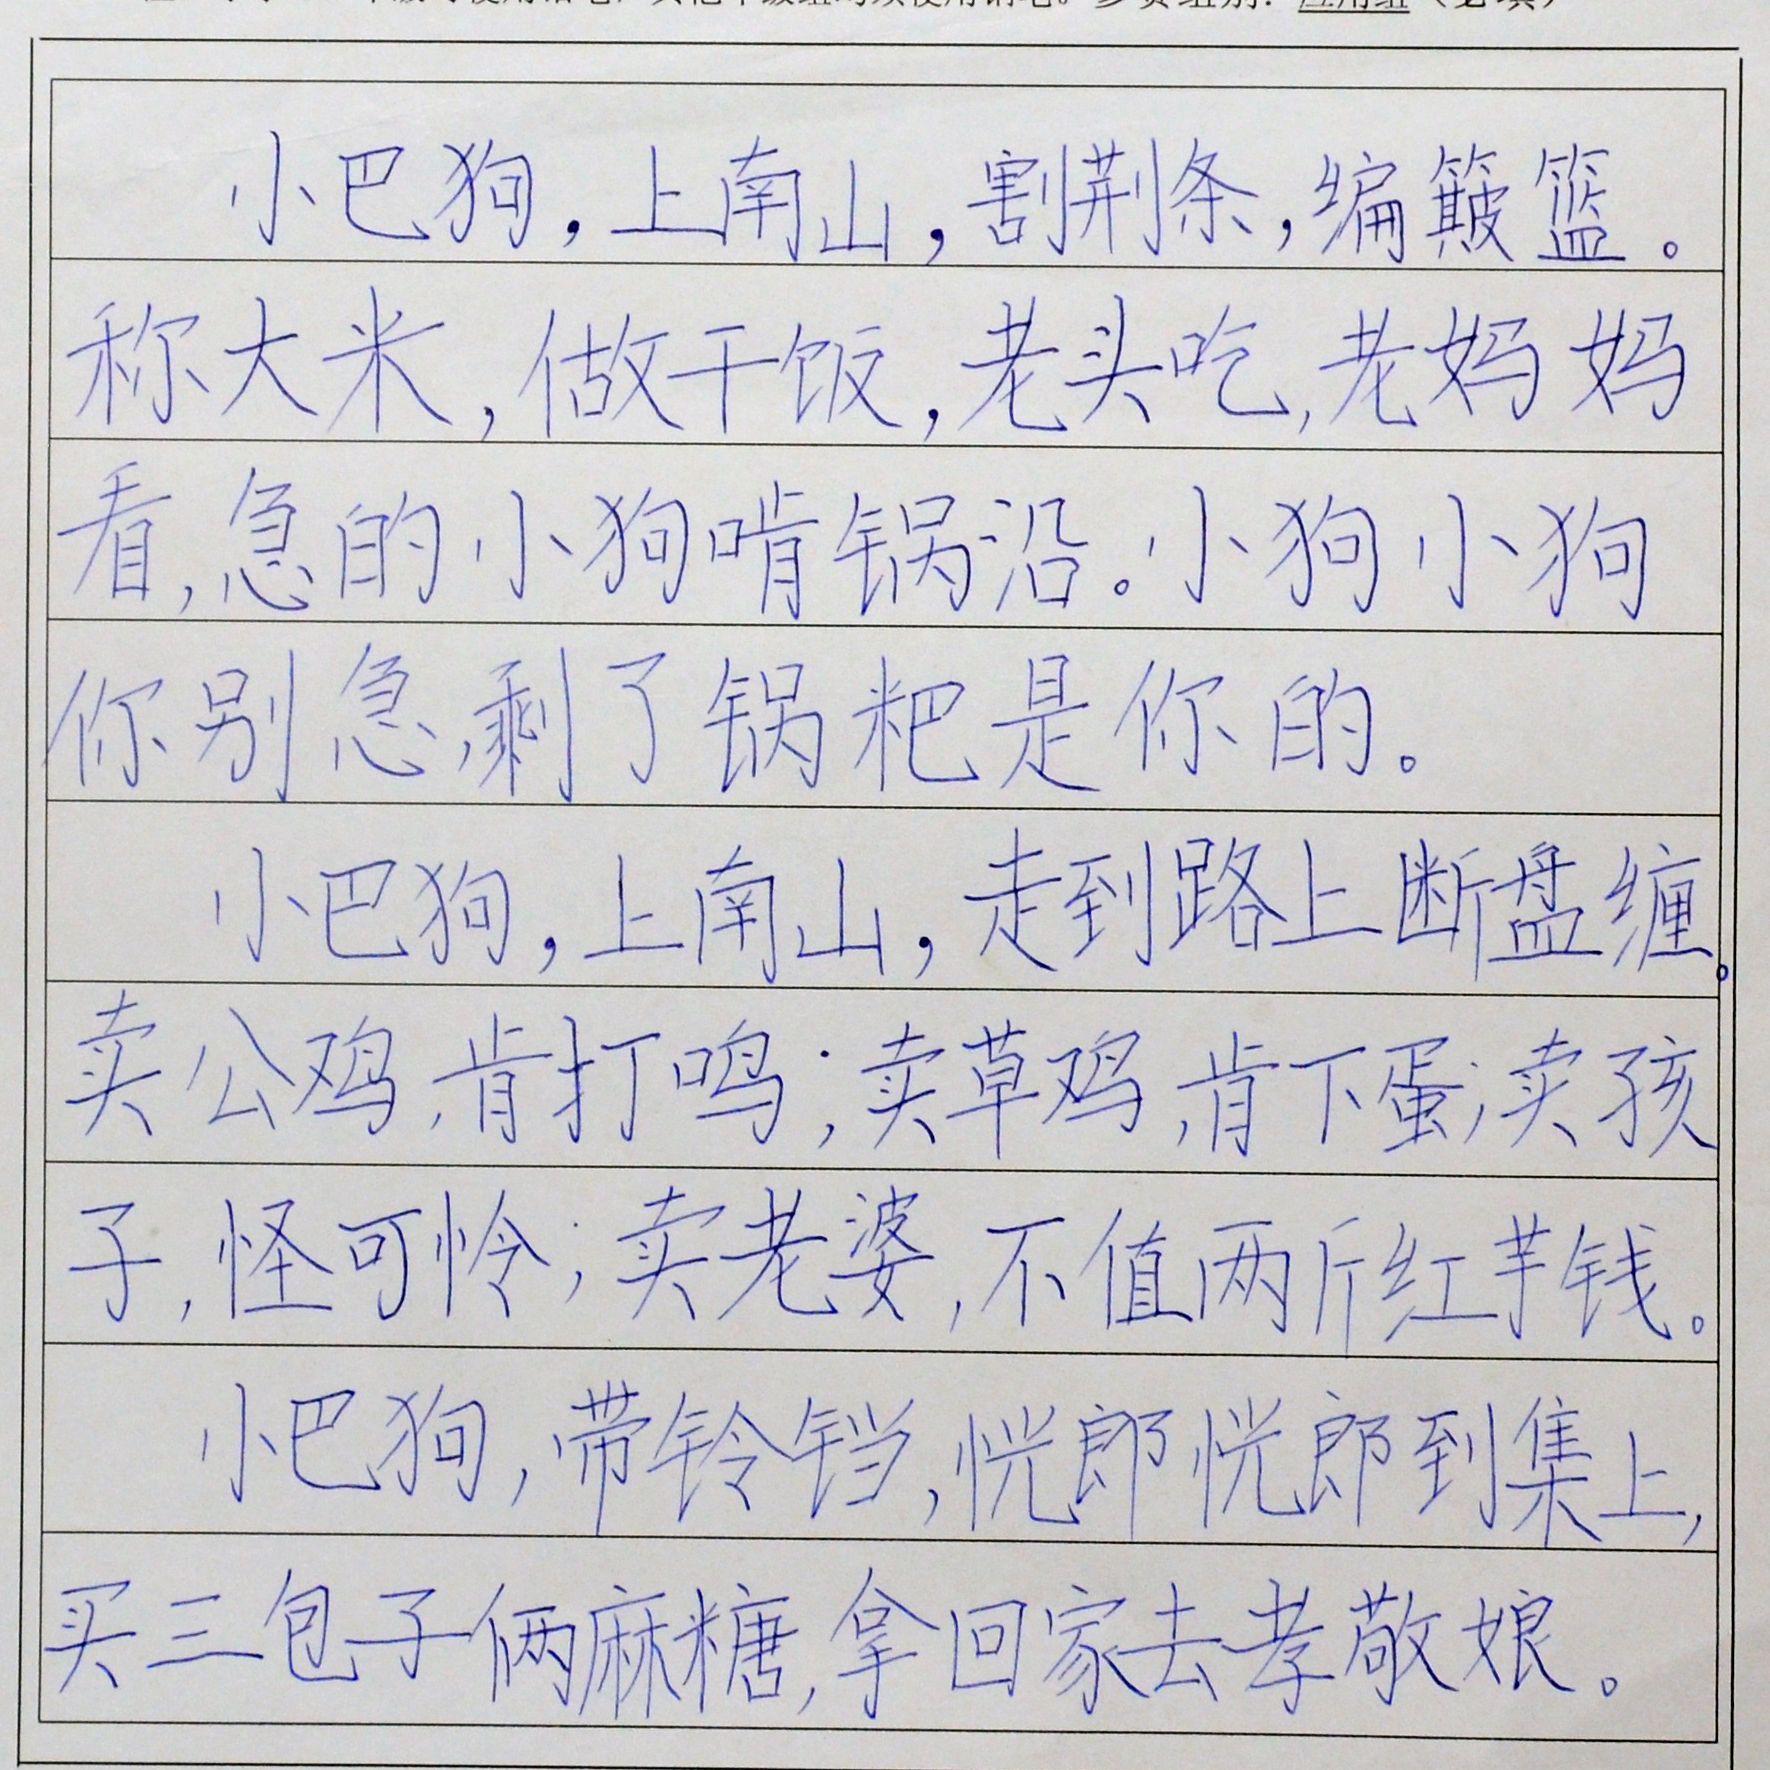 小巴狗，上南山，割荆条，编簸篮。
称大米，做干饭，老头吃，老妈妈
看，急的小狗啃锅沿。小狗小狗
你别急，剩了锅粑是你的。
小巴狗，上南山，走到路上断盘缠。
卖公鸡，肯打鸣；卖草鸡，肯下蛋；卖孩
子，怪可怜；卖老婆，不值两斤红芋钱。
小巴狗，带铃铛，恍郎恍郎到集上，
买三包子俩麻糖，拿回家去孝敬娘。